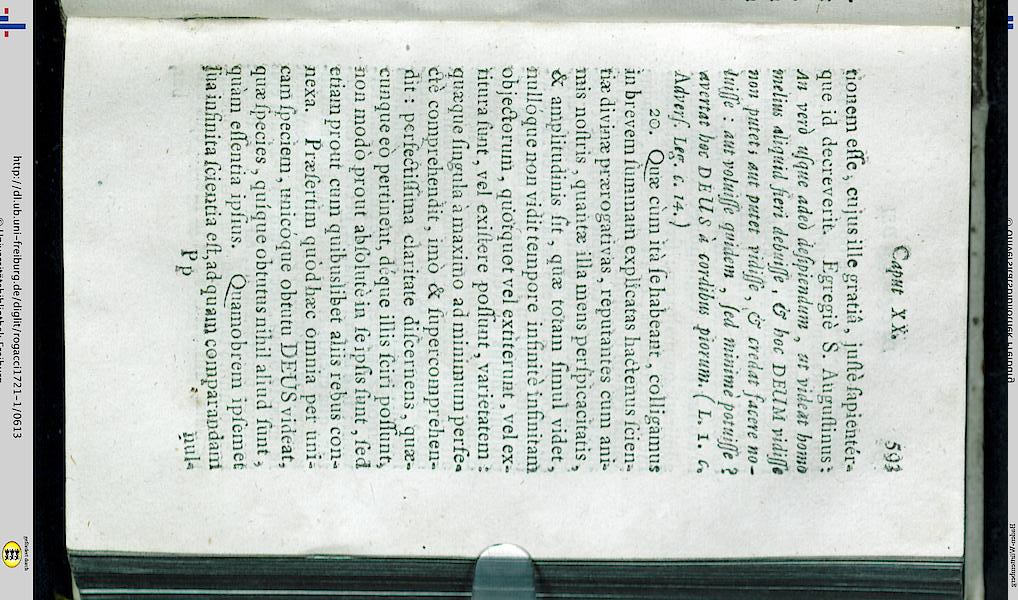 Caput XX. 593
tionem esse, cujus ille gratiâ, justè sapientér-
que id decreverit. Egregiè S. Augustinus:
An verò usque adeò desipiendum, ut videat homo
melius aliquid fieri debuisse, & hoc DEUM vidisse
non putet; aut putet vidisse, & credat facere no-
luisse: aut voluisse quidem, sed minimè potuisse?
avertat hoc DEUS à cordibus piorum. (L. 1. c.
Adversf. Leg. c. 14.)
20. Quæ cùm ità se habeant, colligamus
in brevem summam explicatas hactenus scien-
tiæ divinæ prærogativas, reputantes cum ani-
mis nostris, quantæ illa mens perspicacitatis,
& amplitudinis sit, quæ totam simul videt,
nulloque non vidit tempore infinitè infinitam
objectorum, quotquot vel extiterunt, vel ex-
titura sunt, vel existere possunt, varietatem:
quæque singula à maximo ad minimum perfe-
ctè comprehendit, imò & supercomprehen-
dit: perfectissima claritate discernens, quæ-
cunque eò pertinent, déque illis sciri possunt,
non modò prout absolutè in se ipsis sunt, sed
etiam prout cum quibuslibet aliis rebus con-
nexa. Præsertim quod hæc omnia per uni-
cam speciem, unicóque obtutu DEUS videat,
quæ species, quíque obtutus nihil aliud sunt,
quàm essentia ipsius. Quamobrem ipsemet
sua infinita scientia est, ad quam comparandam
Pp nul-
http://dl.ub.uni-freiburg.de/diglit/rogacci1721-1/0613
© Universitätsbibliothek Freiburg
gefördert durch